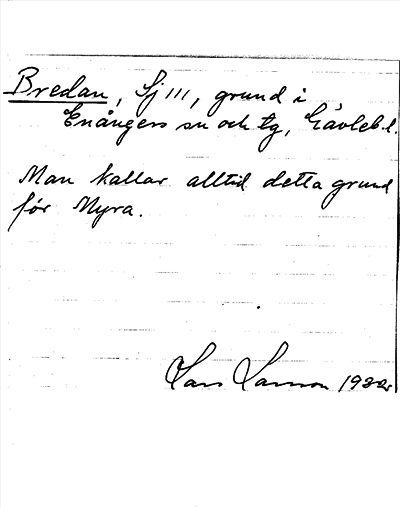 Bredan, Sj III, grund i
Enångers sn och tg, Gävleb.l.
Man kallar alltid detta grund
för Myra.
Lars Larsson